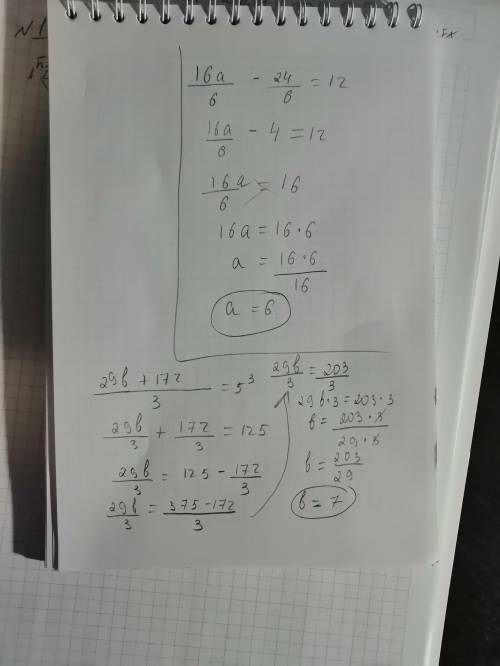 N 1
16a/6 - 24/6 = 12
16a/6 - 4 = 12
16a/6 = 16
16a = 16·6
a = 16·6/16
a = 6
29b + 172/3 = 5³
29b/3 + 172/3 = 125
29b/3 = 125 - 172/3
29b/3 = 375-172/3
29b/3 = 203/3
29b·3 = 203·3
b = 203·3/29·3
b = 203/29
b = 7